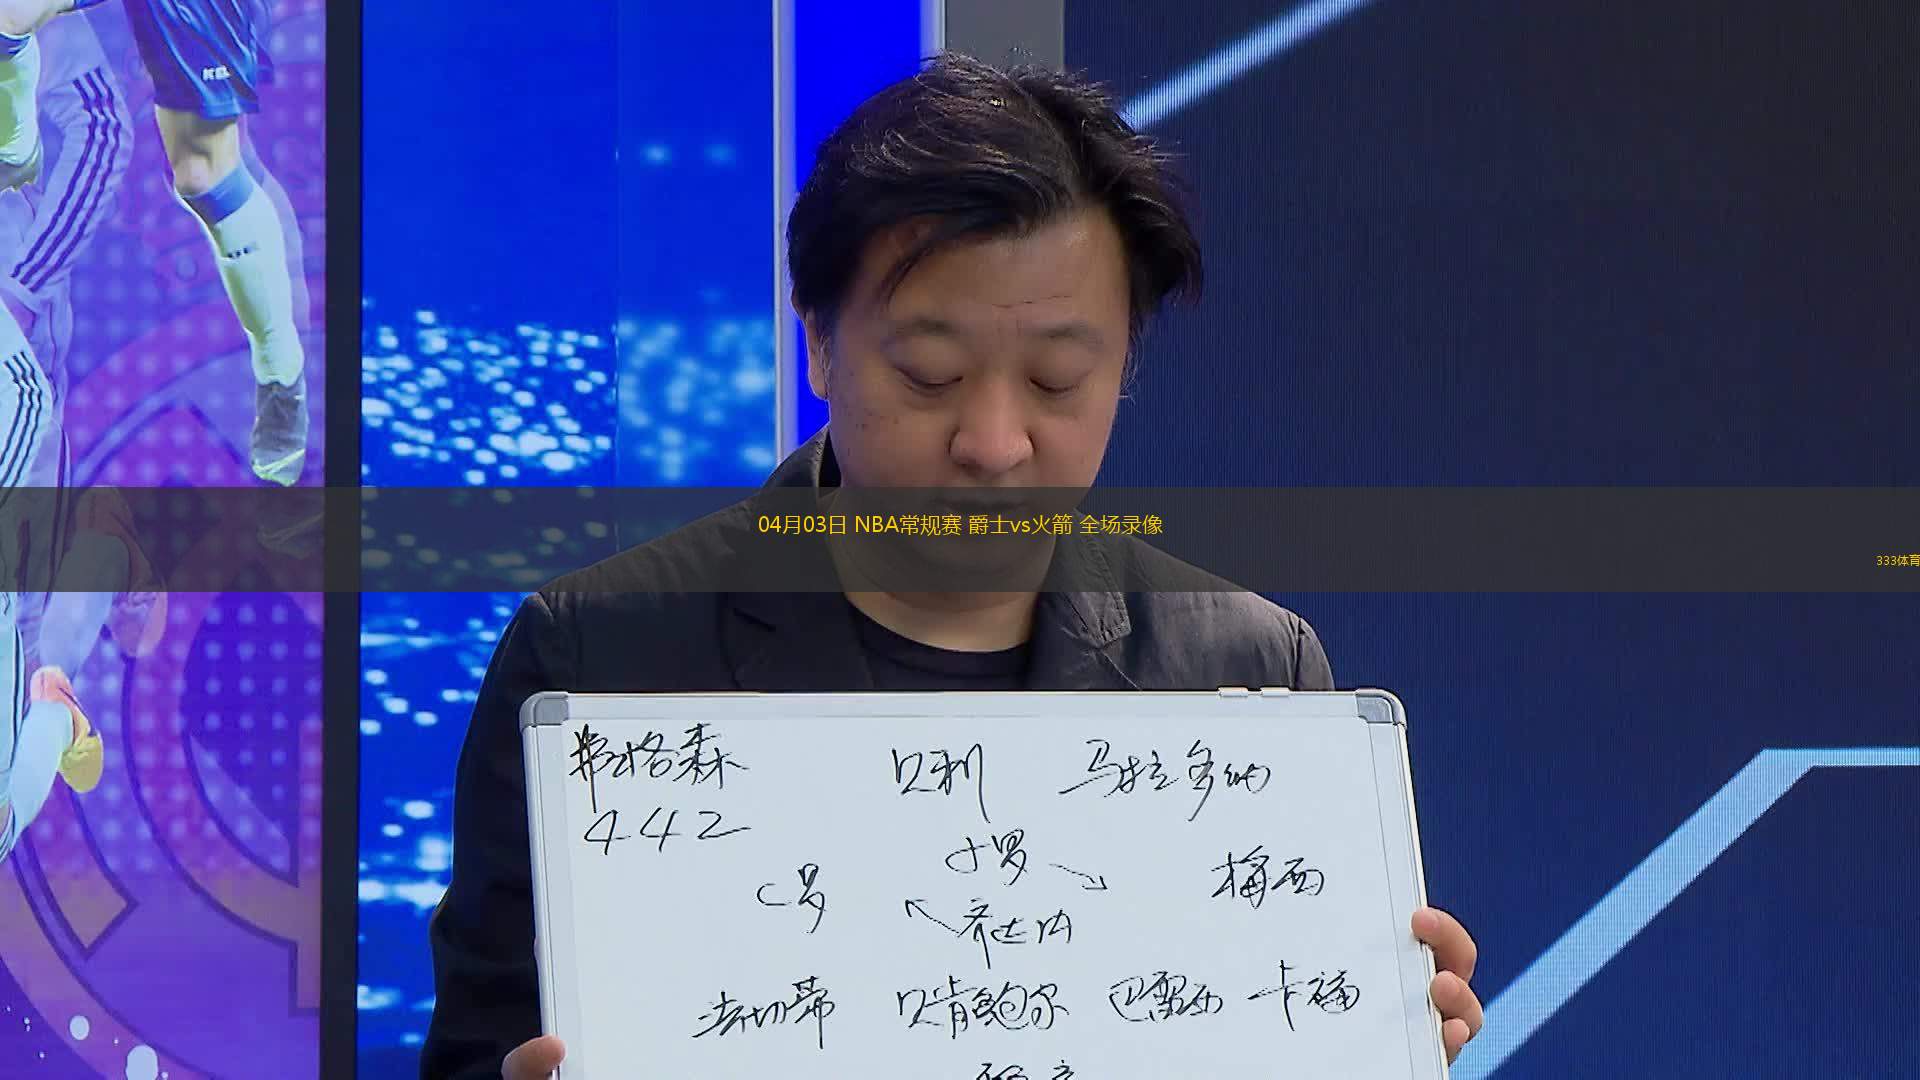 04月03日 NBA常规赛 爵士vs火箭 全场录像
333体育
弗格森 贝利 马拉多纳
442
小罗
C罗 梅西
齐达内
法切蒂 贝肯鲍尔 巴雷西 卡福